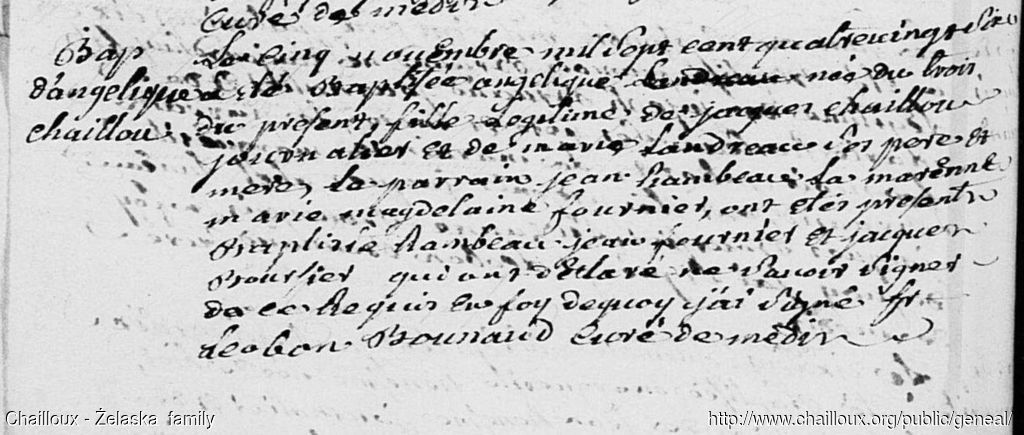 Curé de médir
Bap
d'angelique
chaillou
Le cinq novembre mil sept cent quatre vingt six
a eté Baptisée angelique Landreau née du trois
du present, fille Legitime de jacques chaillou
journalier Et de marie Landreau ses pere et
mere, Le parrain jean Rambeau La marenne
marie magdelaine fournier, ont etés present
Baptiste Rambeau jean fournier Et jacques
Boursier qui ont déclaré ne savoir signer
de ce Requis En foy dequoy j'ai signé fr
Bounaud Curé de médir
Chailloux - Żelaska family
http://www.chailloux.org/public/geneal/